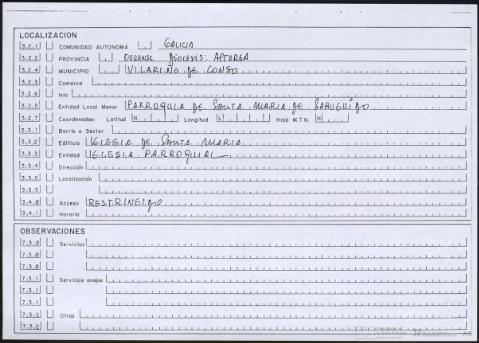 LOCALIZACION
3.2.1 COMUNIDAD AUTONOMA GALICIA
3.2.2 PROVINCIA ORENSE DIOCESIS: ASTORGA
3.2.4 MUNICIPIO VILARIÑO DE CONSO
3.2.3 Comarca
3.2.6 Isla
3.2.5 Entidad Local Menor PARROQUIA DE SANTA MARIA DE SABUGUIDO
3.2.7 Coordenadas: Latitud N Longitud Hoja M.T.N.
3.3.1 Barrio o Sector
3.3.2 Edificio IGLESIA DE SANTA MARIA
3.3.3 Entidad IGLESIA PARROQUIAL
3.3.4 Dirección
3.3.5 Localización
3.3.5
3.4.0 Acceso RESTRINGIDO
3.4.1 Horario
OBSERVACIONES
7.3.0 Servicios
7.3.0
7.3.0
7.3.1 Servicios anejos
7.3.1
7.3.1
7.3.2 Otros
7.3.2